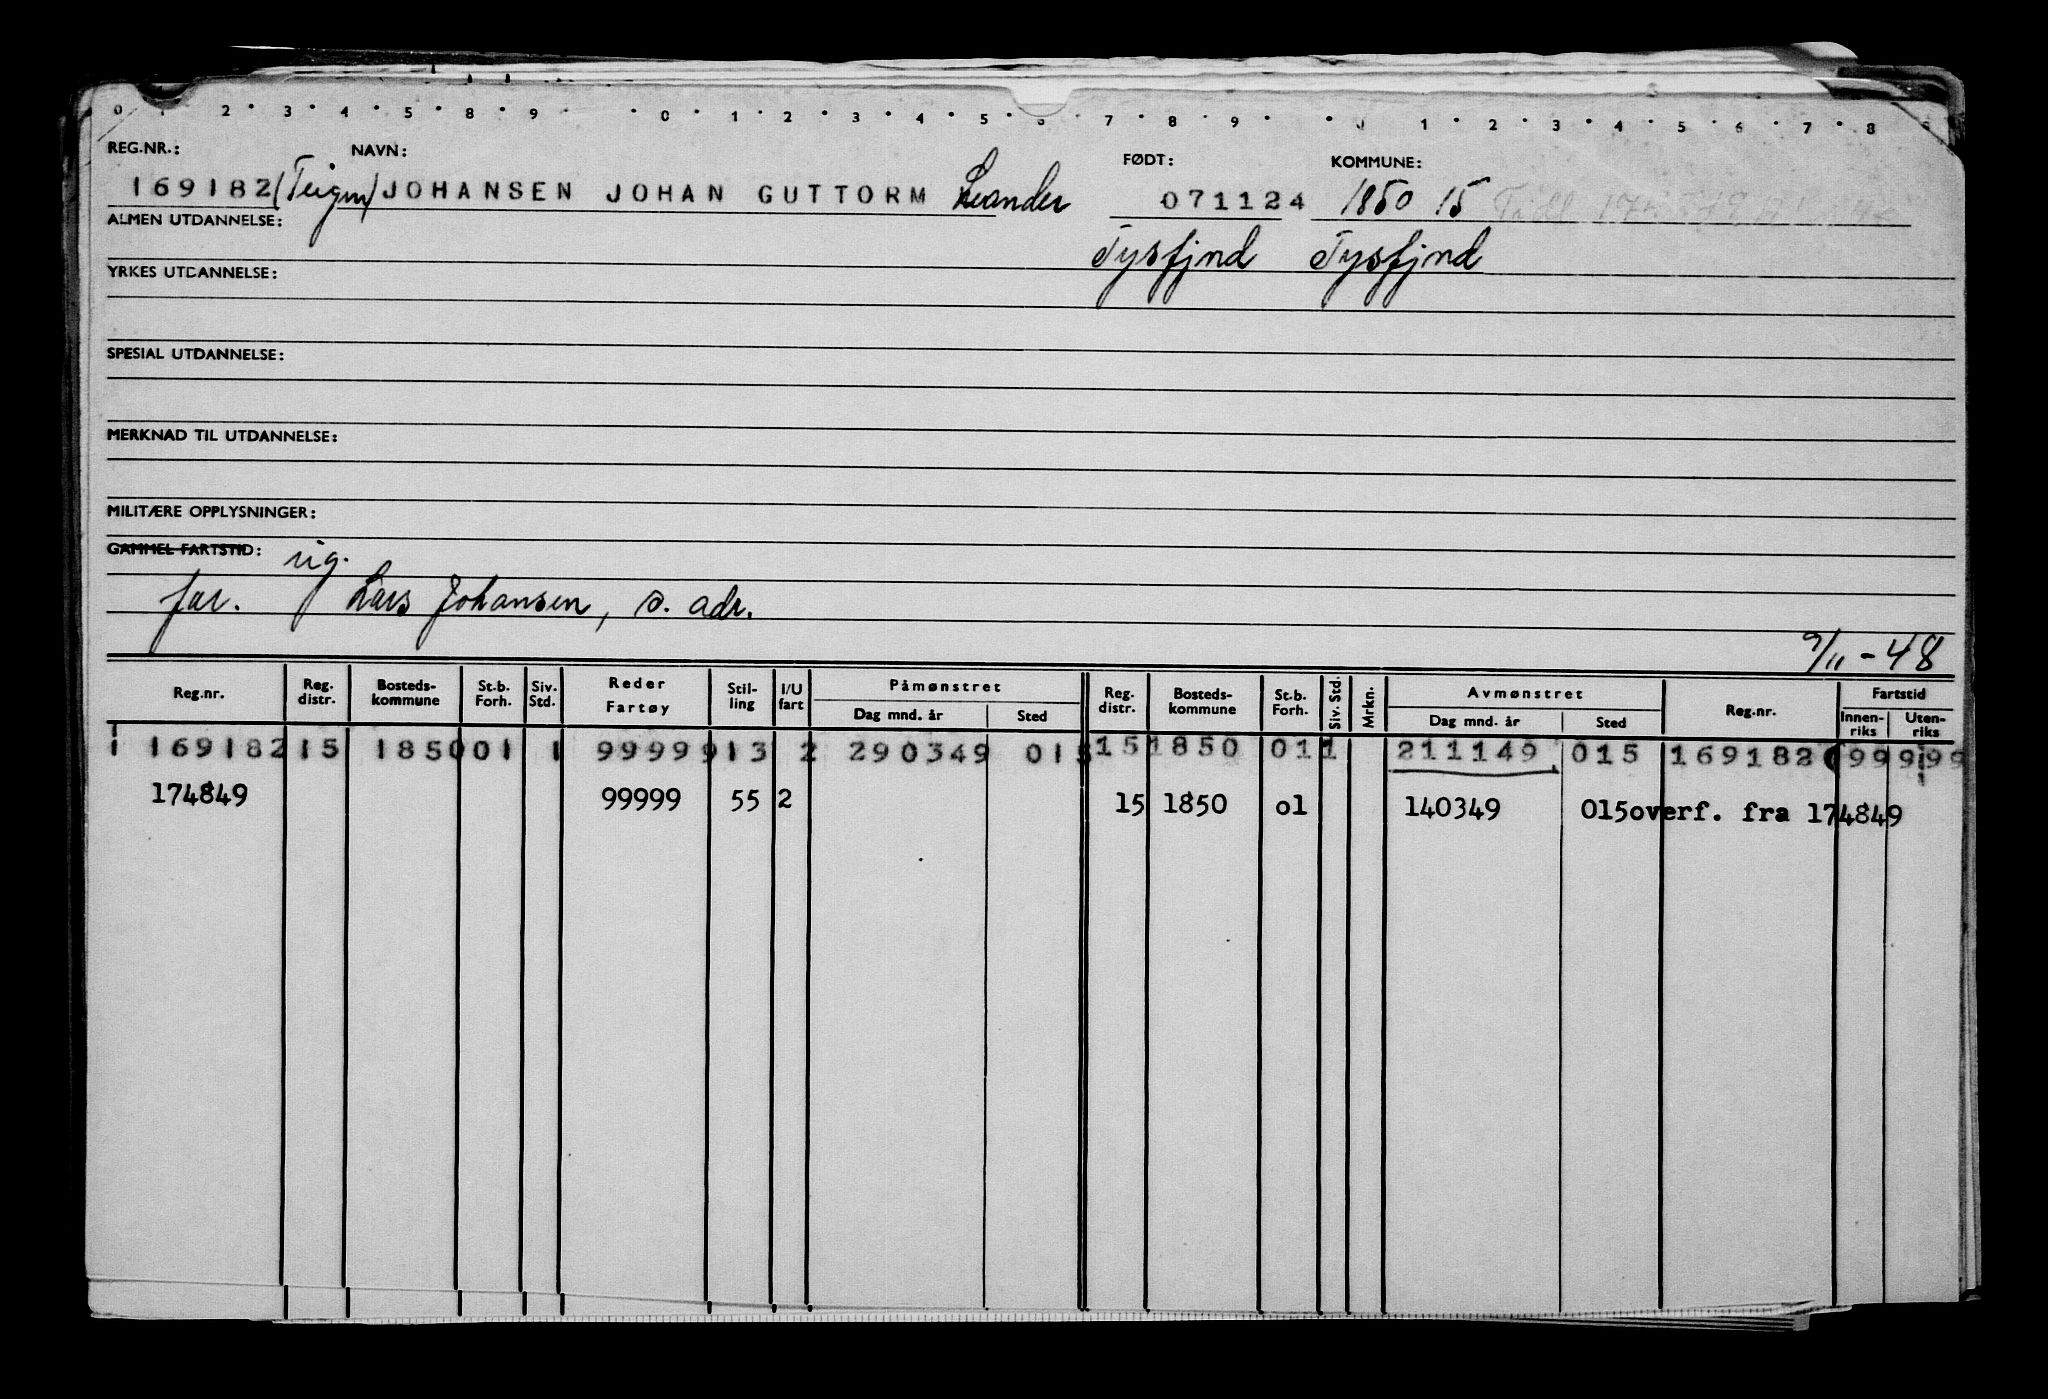 0 1 2 3 4 5 8 9 0 1 2 3 4 5 6 7 8 9 0 1 2 3 4 5 6 7 8 9
REG.NR.: NAVN: FØDT: KOMMUNE:
169182 (Teigen) JOHANSEN JOHAN GUTTORM Leander 071124 1850 15
ALMEN UTDANNELSE: Tysfjord Tysfjord
YRKES UTDANNELSE:
SPESIAL UTDANNELSE:
MERKNAD TIL UTDANNELSE:
MILITÆRE OPPLYSNINGER:
GAMMEL FARTSTID: ug.
far. Lars Johansen, s. adr.
9/11-48
Reg.nr. Reg. distr. Bosteds-kommune St.b. Forh. Siv. Std. Reder Fartøy Stil-ling I/U fart Påmønstret Dag mnd. år Sted Reg. distr. Bosteds-kommune St.b. Forh. Siv. Std. Mrkn. Avmønstret Dag mnd. år Sted Reg.nr. Fartstid Innen-riks Uten-riks
1 169182 15 1850 01 1 99999 13 2 290349 015 15 1850 01 1 211149 015 169182 99 999
174849 99999 55 2 15 1850 o1 140349 015overf. fra 174849